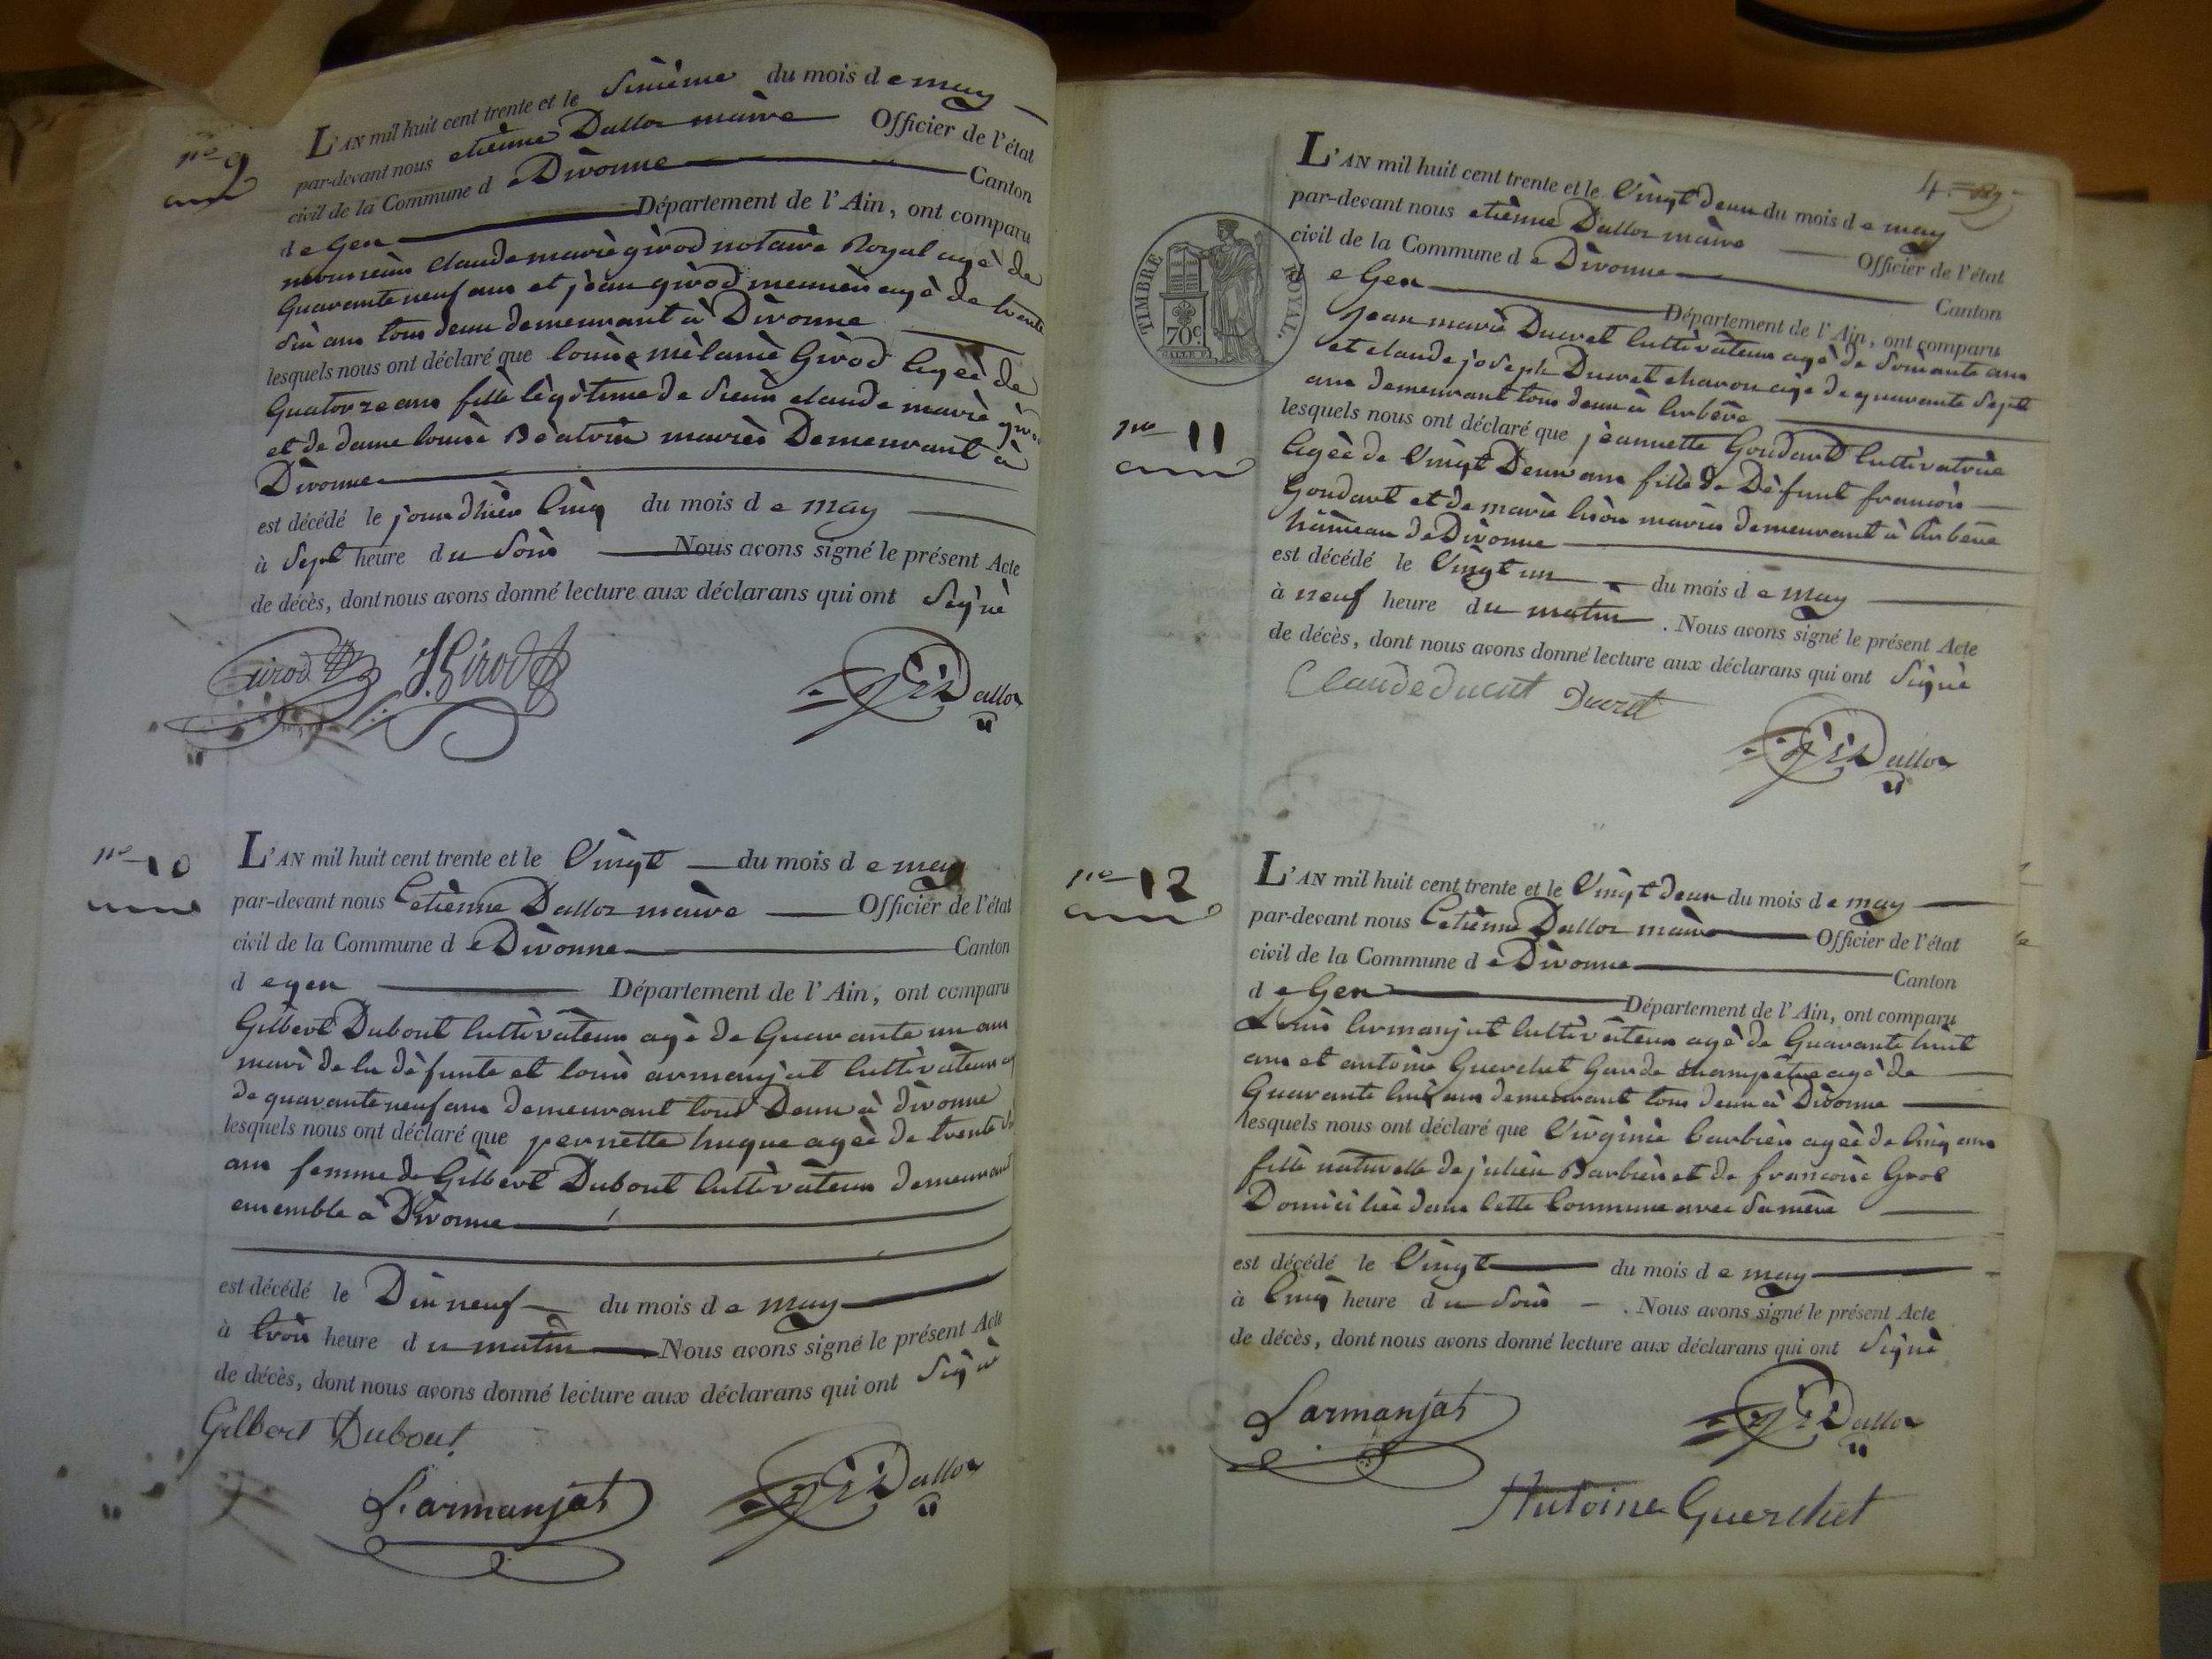 nº 9
L'AN mil huit cent trente et le Sixième du mois de may
par-devant nous etiènne Dalloz maire Officier de l'état
civil de la Commune de Divonne Canton
de Gex Département de l'Ain, ont comparu
monsieur claude marie girod notaire Royal agé de
Quarante neuf ans et jean girod meunier agé de trente
Six ans tous deux demeurant à Divonne
lesquels nous ont déclaré que louise mélanie Girod Agée de
Quatorze ans fille légitime de Sieur claude marie girod
et de dame louise Béatrix mariés Demeurant à
Divonne
est décédé le jour d'hier Cinq du mois de may
à Sept heure du Soir Nous avons signé le présent Acte
de décès, dont nous avons donné lecture aux déclarans qui ont Signé
Girod J. Girod Dalloz
nº 10
L'AN mil huit cent trente et le Vingt du mois de may
par-devant nous Etiènne Dalloz maire Officier de l'état
civil de la Commune de Divonne Canton
de gex Département de l'Ain, ont comparu
Gilbert Dubout Cultivateur agé de Quarante un ans
mari de la défunte et louis armanjat Cultivateur
de quarante neuf ans demeurant tous Deux à divonne
lesquels nous ont déclaré que pernette huque agée de trente
ans femme de Gilbert Dubout Cultivateur demeurant
ensemble à Divonne
est décédé le Dix neuf du mois de may
à trois heure du matin Nous avons signé le présent Acte
de décès, dont nous avons donné lecture aux déclarans qui ont Signé
Gilbert Dubout
L. armanjat Dalloz
4.
L'AN mil huit cent trente et le Vingt deux du mois de may
par-devant nous etiènne Dalloz maire Officier de l'état
civil de la Commune de Divonne Canton
de Gex Département de l'Ain, ont comparu
TIMBRE ROYAL.
70c
nº 11
Jean marie Ducret Cultivateur agé de Soixante ans
et claude joseph Ducret charon agé de quarante Sept
ans demeurant tous deux à Arbère
lesquels nous ont déclaré que jeannette Goudard Cultivatrice
Agée de Vingt Deux ans fille de Défunt francois
Goudart et de marie mariés demeurant à Arbère
hameau de Divonne
est décédé le Vingt un du mois de may
à neuf heure du matin . Nous avons signé le présent Acte
de décès, dont nous avons donné lecture aux déclarans qui ont Signé
Claude ducret Ducret
Dalloz
nº 12
L'AN mil huit cent trente et le Vingt deux du mois de may
par-devant nous Etiènne Dalloz maire Officier de l'état
civil de la Commune de Divonne Canton
de Gex Département de l'Ain, ont comparu
Louis Armanjat Cultivateur agé de Quarante huit
ans et antoine Guerchet Garde champêtre agé de
Quarante huit ans demeurant tous deux à Divonne
lesquels nous ont déclaré que Virginie barbier agée de Cinq ans
fille naturelle de julien Barbier et de francoise Gros
Domiciliée dans Cette Commune avec Sa mère
est décédé le Vingt du mois de may
à Cinq heure du Soir . Nous avons signé le présent Acte
de décès, dont nous avons donné lecture aux déclarans qui ont Signé
L armanjat Dalloz
Antoine Guerchet